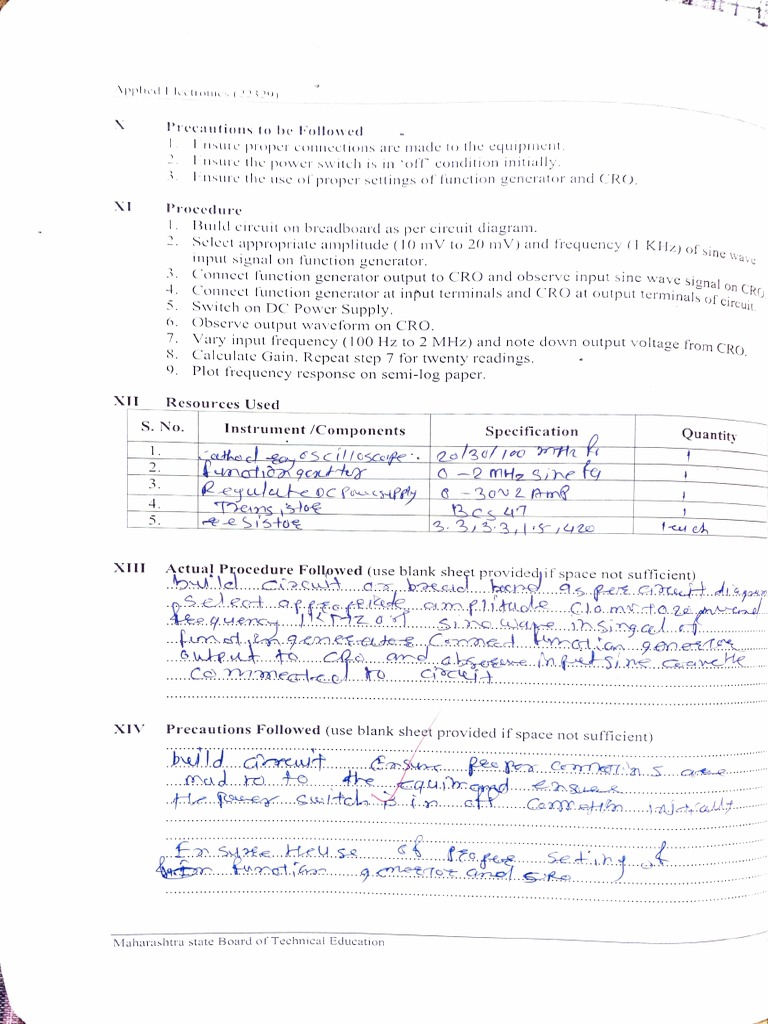 Applied Electronics (22329)
X Precautions to be Followed
1. Ensure proper connections are made to the equipment.
2. Ensure the power switch is in 'off' condition initially.
3. Ensure the use of proper settings of function generator and CRO.
XI Procedure
1. Build circuit on breadboard as per circuit diagram.
2. Select appropriate amplitude (10 mV to 20 mV) and frequency (1 KHz) of sine wave
input signal on function generator.
3. Connect function generator output to CRO and observe input sine wave signal on CRO.
4. Connect function generator at input terminals and CRO at output terminals of circuit.
5. Switch on DC Power Supply.
6. Observe output waveform on CRO.
7. Vary input frequency (100 Hz to 2 MHz) and note down output voltage from CRO.
8. Calculate Gain. Repeat step 7 for twenty readings.
9. Plot frequency response on semi-log paper.
XII Resources Used
S. No. Instrument /Components Specification Quantity
1. oscilloscope 20/30/100 MHz 1
2. 0-2 MHz sine 1
3. Regulate DC power supply 0-30 2 Amp 1
4. 1
5. resistor 3.3, 3.3, 1.5, 420
XIII Actual Procedure Followed (use blank sheet provided if space not sufficient)
build circuit bread as per circuit diagram
select amplitude
frequency 1KHz sine wave
Connect function generator
output to CRO and input sine
to circuit
XIV Precautions Followed (use blank sheet provided if space not sufficient)
build circuit Ensure proper are
to the and ensure
power switch is in off
of proper seting of
function and
Maharashtra state Board of Technical Education